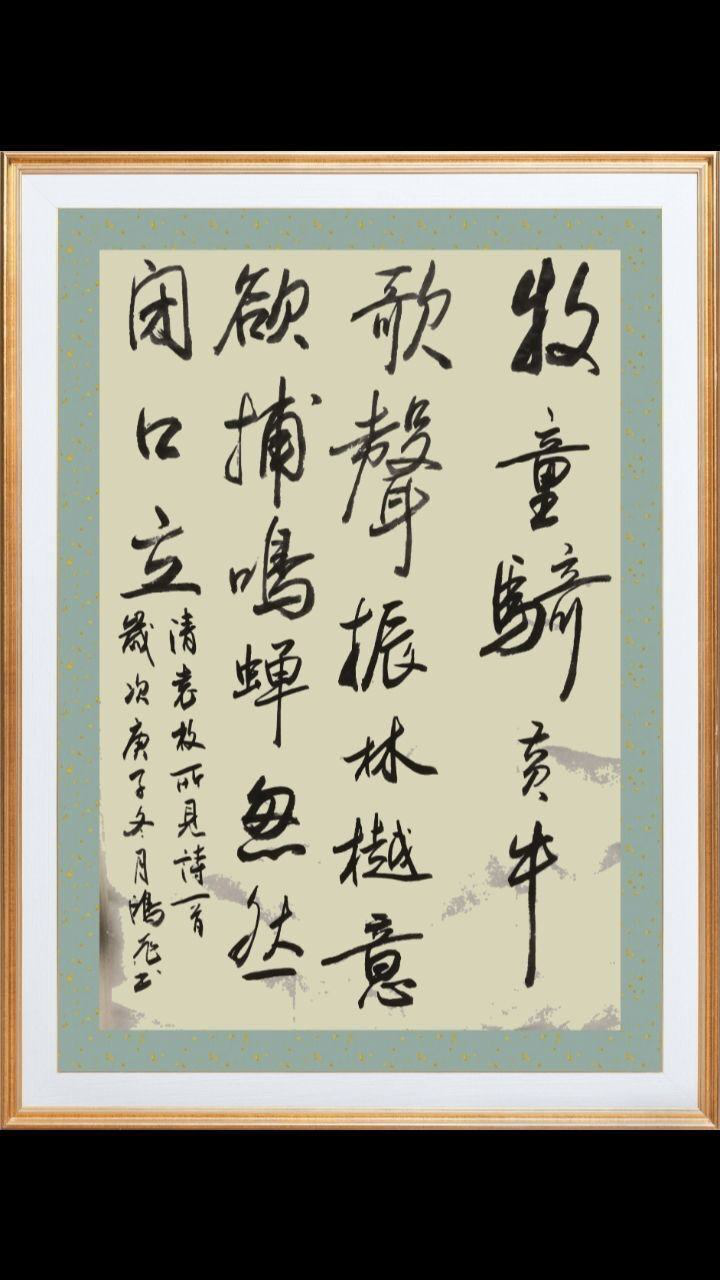 牧童騎黄牛
歌聲振林樾意
欲捕鳴蝉忽然
闭口立
清袁枚所見詩一首
歲次庚子冬月鴻飛书